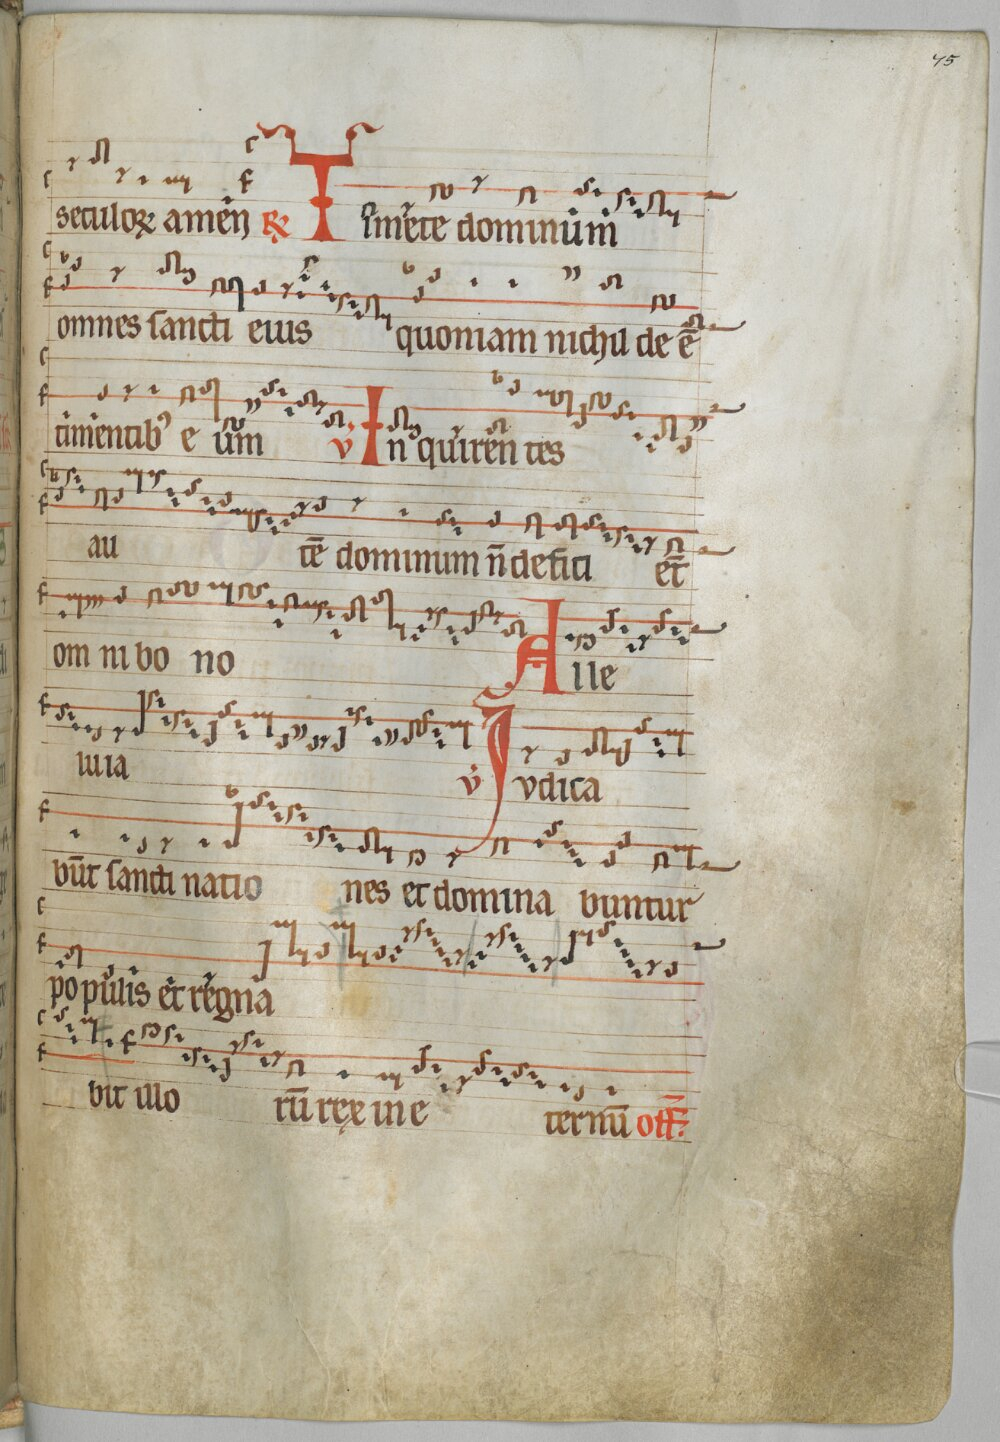 75
seculoꝝ amen ℟ Timete dominum
omnes sancti eius quoniam nichil de ē
timentibꝰ e um ℣ Inquiren tes
au tē dominum n̄ defici et̄
om ni bo no Alle
luia ℣ Iudica
būt sancti natio nes et domina buntur
populis et regna
bit illo rū rex in e ternū off̄.